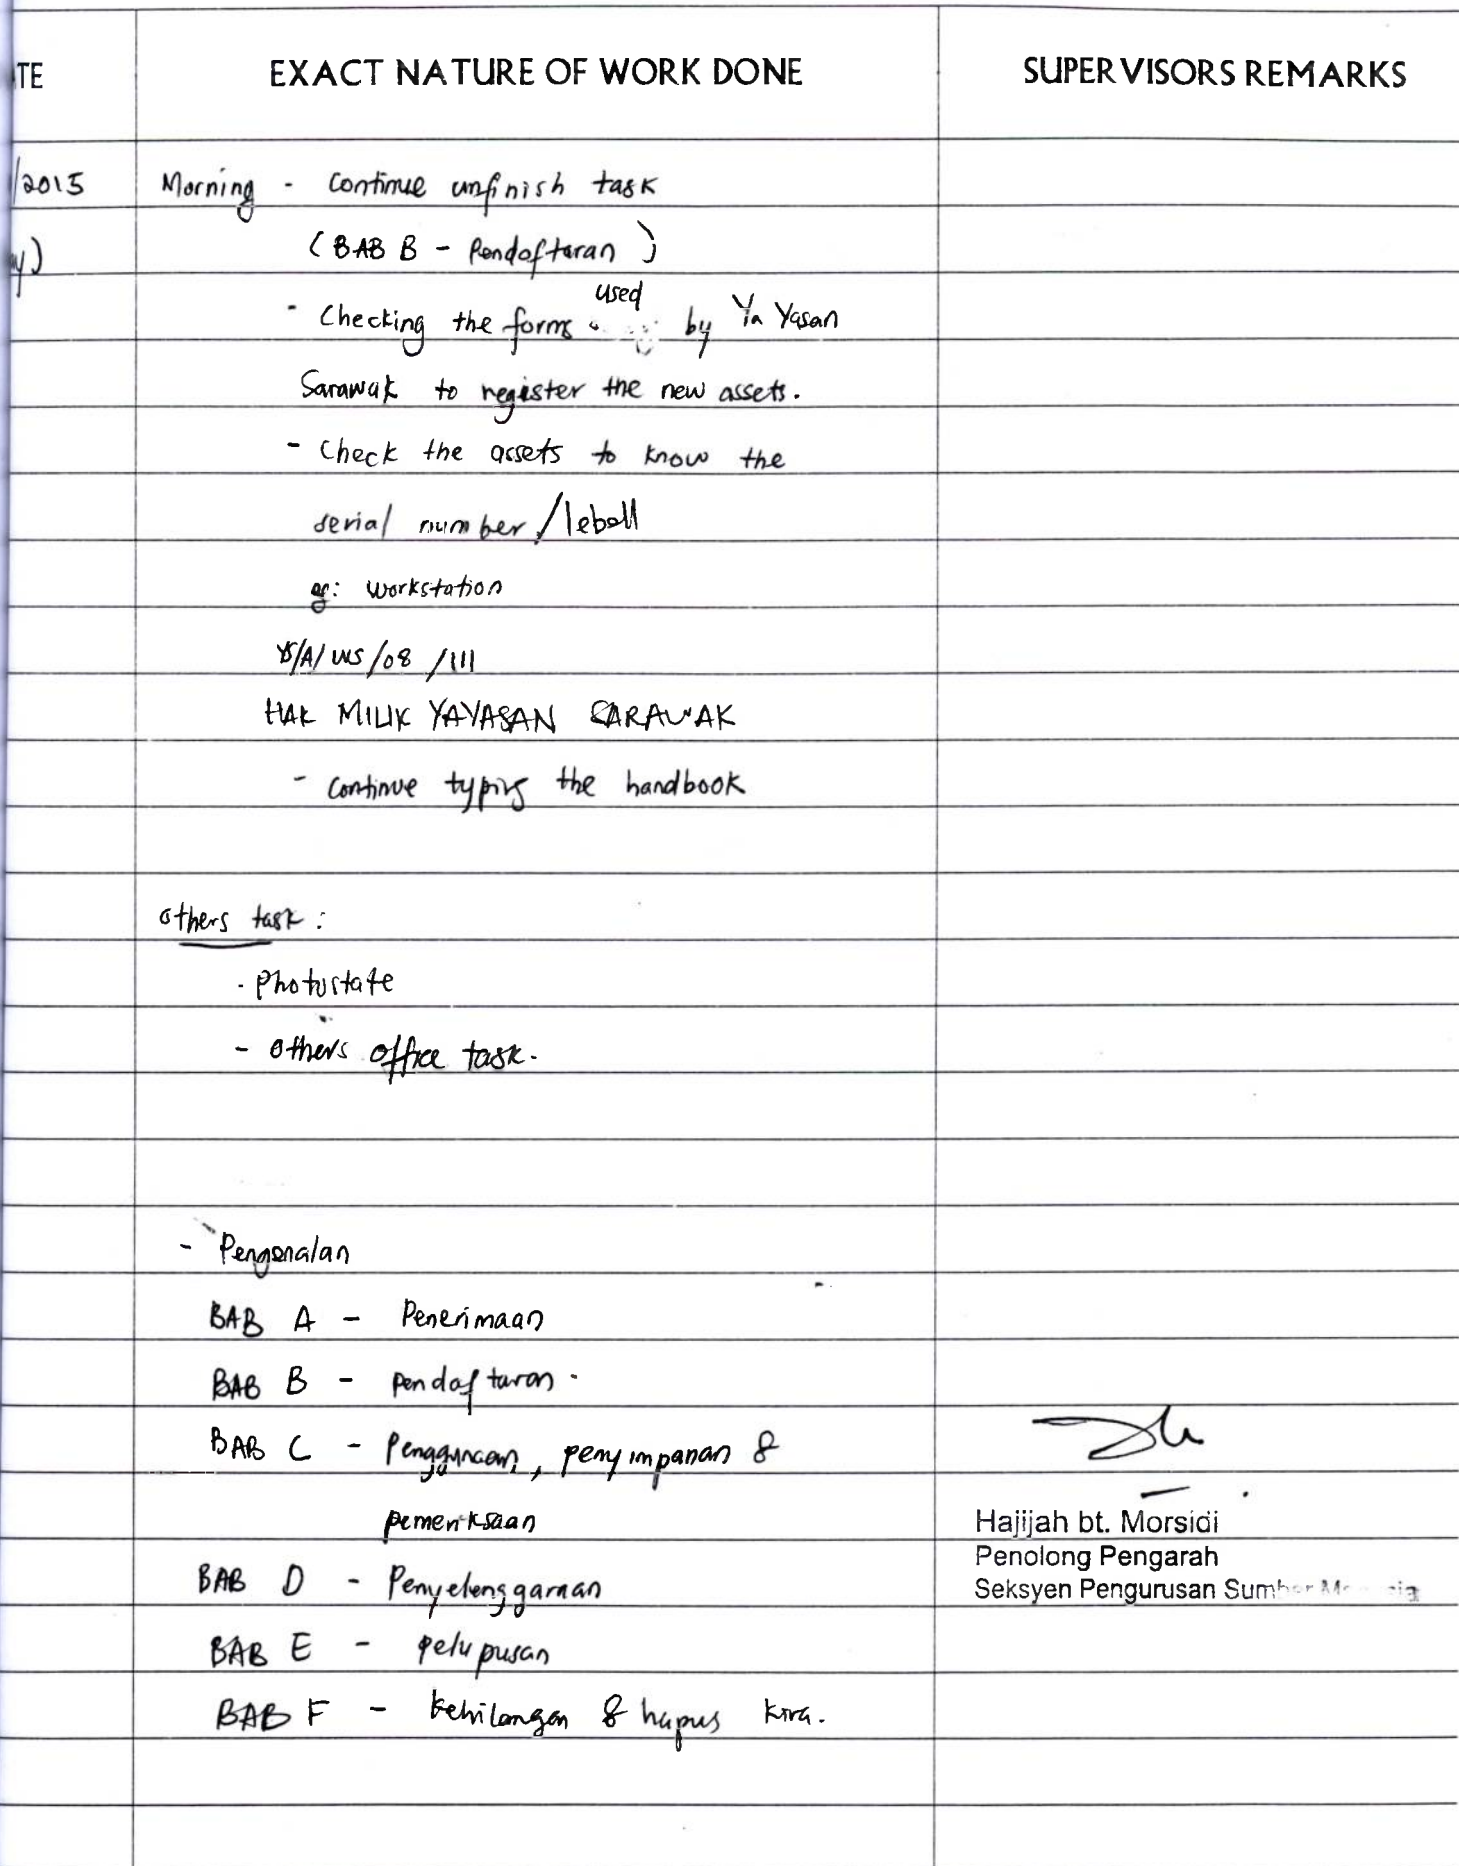 TE EXACT NATURE OF WORK DONE SUPERVISORS REMARKS
/2015 Morning - Continue unfinish task
y) (BAB B - Pendaftaran)
used
- Checking the forms by Ya Yasan
Sarawak to register the new assets.
- Check the assets to know the
serial number / lebell
eg: workstation
YS/A/WS/08/111
HAK MILIK YAYASAN SARAWAK
- continue typing the handbook
others task:
- Photostate
- others office task.
- Pengenalan
BAB A - Penerimaan
BAB B - pendaftaran.
BAB C - Penggunaan, penyimpanan &
pemeriksaan
BAB D - Penyelenggaraan
BAB E - pelupusan
BAB F - kehilangan & hapus kira.
Hajijah bt. Morsidi
Penolong Pengarah
Seksyen Pengurusan Sumber